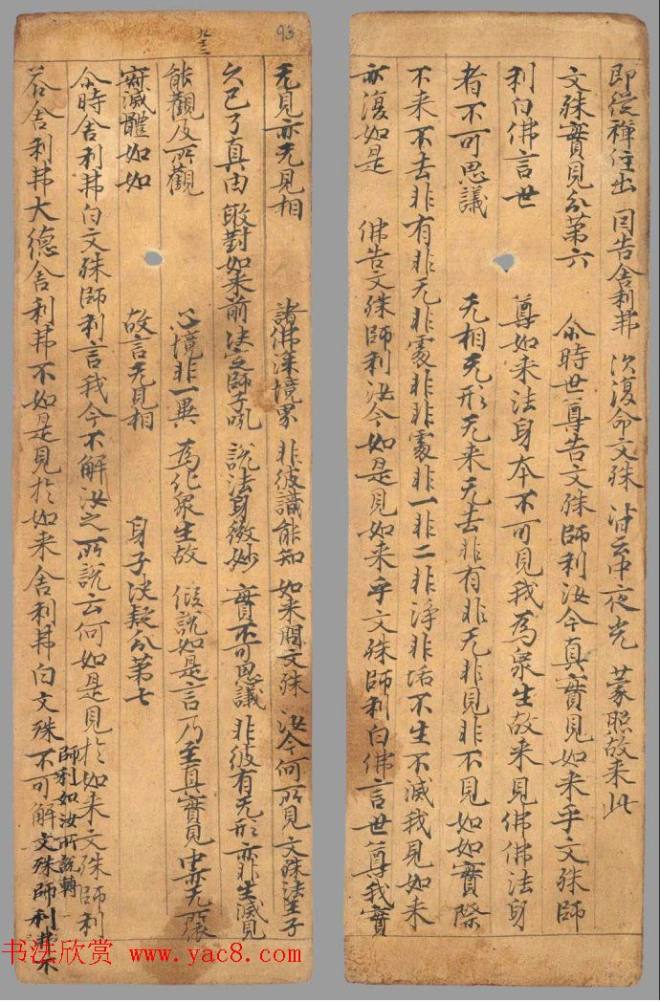 即從禪住出 因告舍利弗 次復命文殊 中夜光 蒙照故来此
文殊實見分第六 尒時世尊告文殊師利汝今真實見如来乎文殊師
利白佛言世 尊如来法身本不可見我為衆生故来見佛佛法身
者不可思議 无相无形无来无去非有非无非見非不見如如實際
不来不去非有非无非處非非處非一非二非淨非垢不生不滅我見如来
亦復如是 佛告文殊師利汝今如是見如来乎文殊師利白佛言世尊我實
93
九十三
无見亦无見相 諸佛深境界 非彼識能知 如来問文殊 汝今何所見 文殊法王子
久已了真由 敢對如来前 决定師子吼 說法身微妙 實不可思議 非彼有无形 亦非生滅見
能觀及所觀 心境非一異 為化衆生故 假說如是言 乃至真實見 中亦无
寂滅體如如 故言无見相 身子决疑分第七
尒時舍利弗白文殊師利言我今不解汝之所說云何如是見於如来文殊師利
荅舍利弗大德舍利弗不如是見於如来舍利弗白文殊
師利如汝所說轉
不可解文殊師利
书法欣赏 www.yac8.com